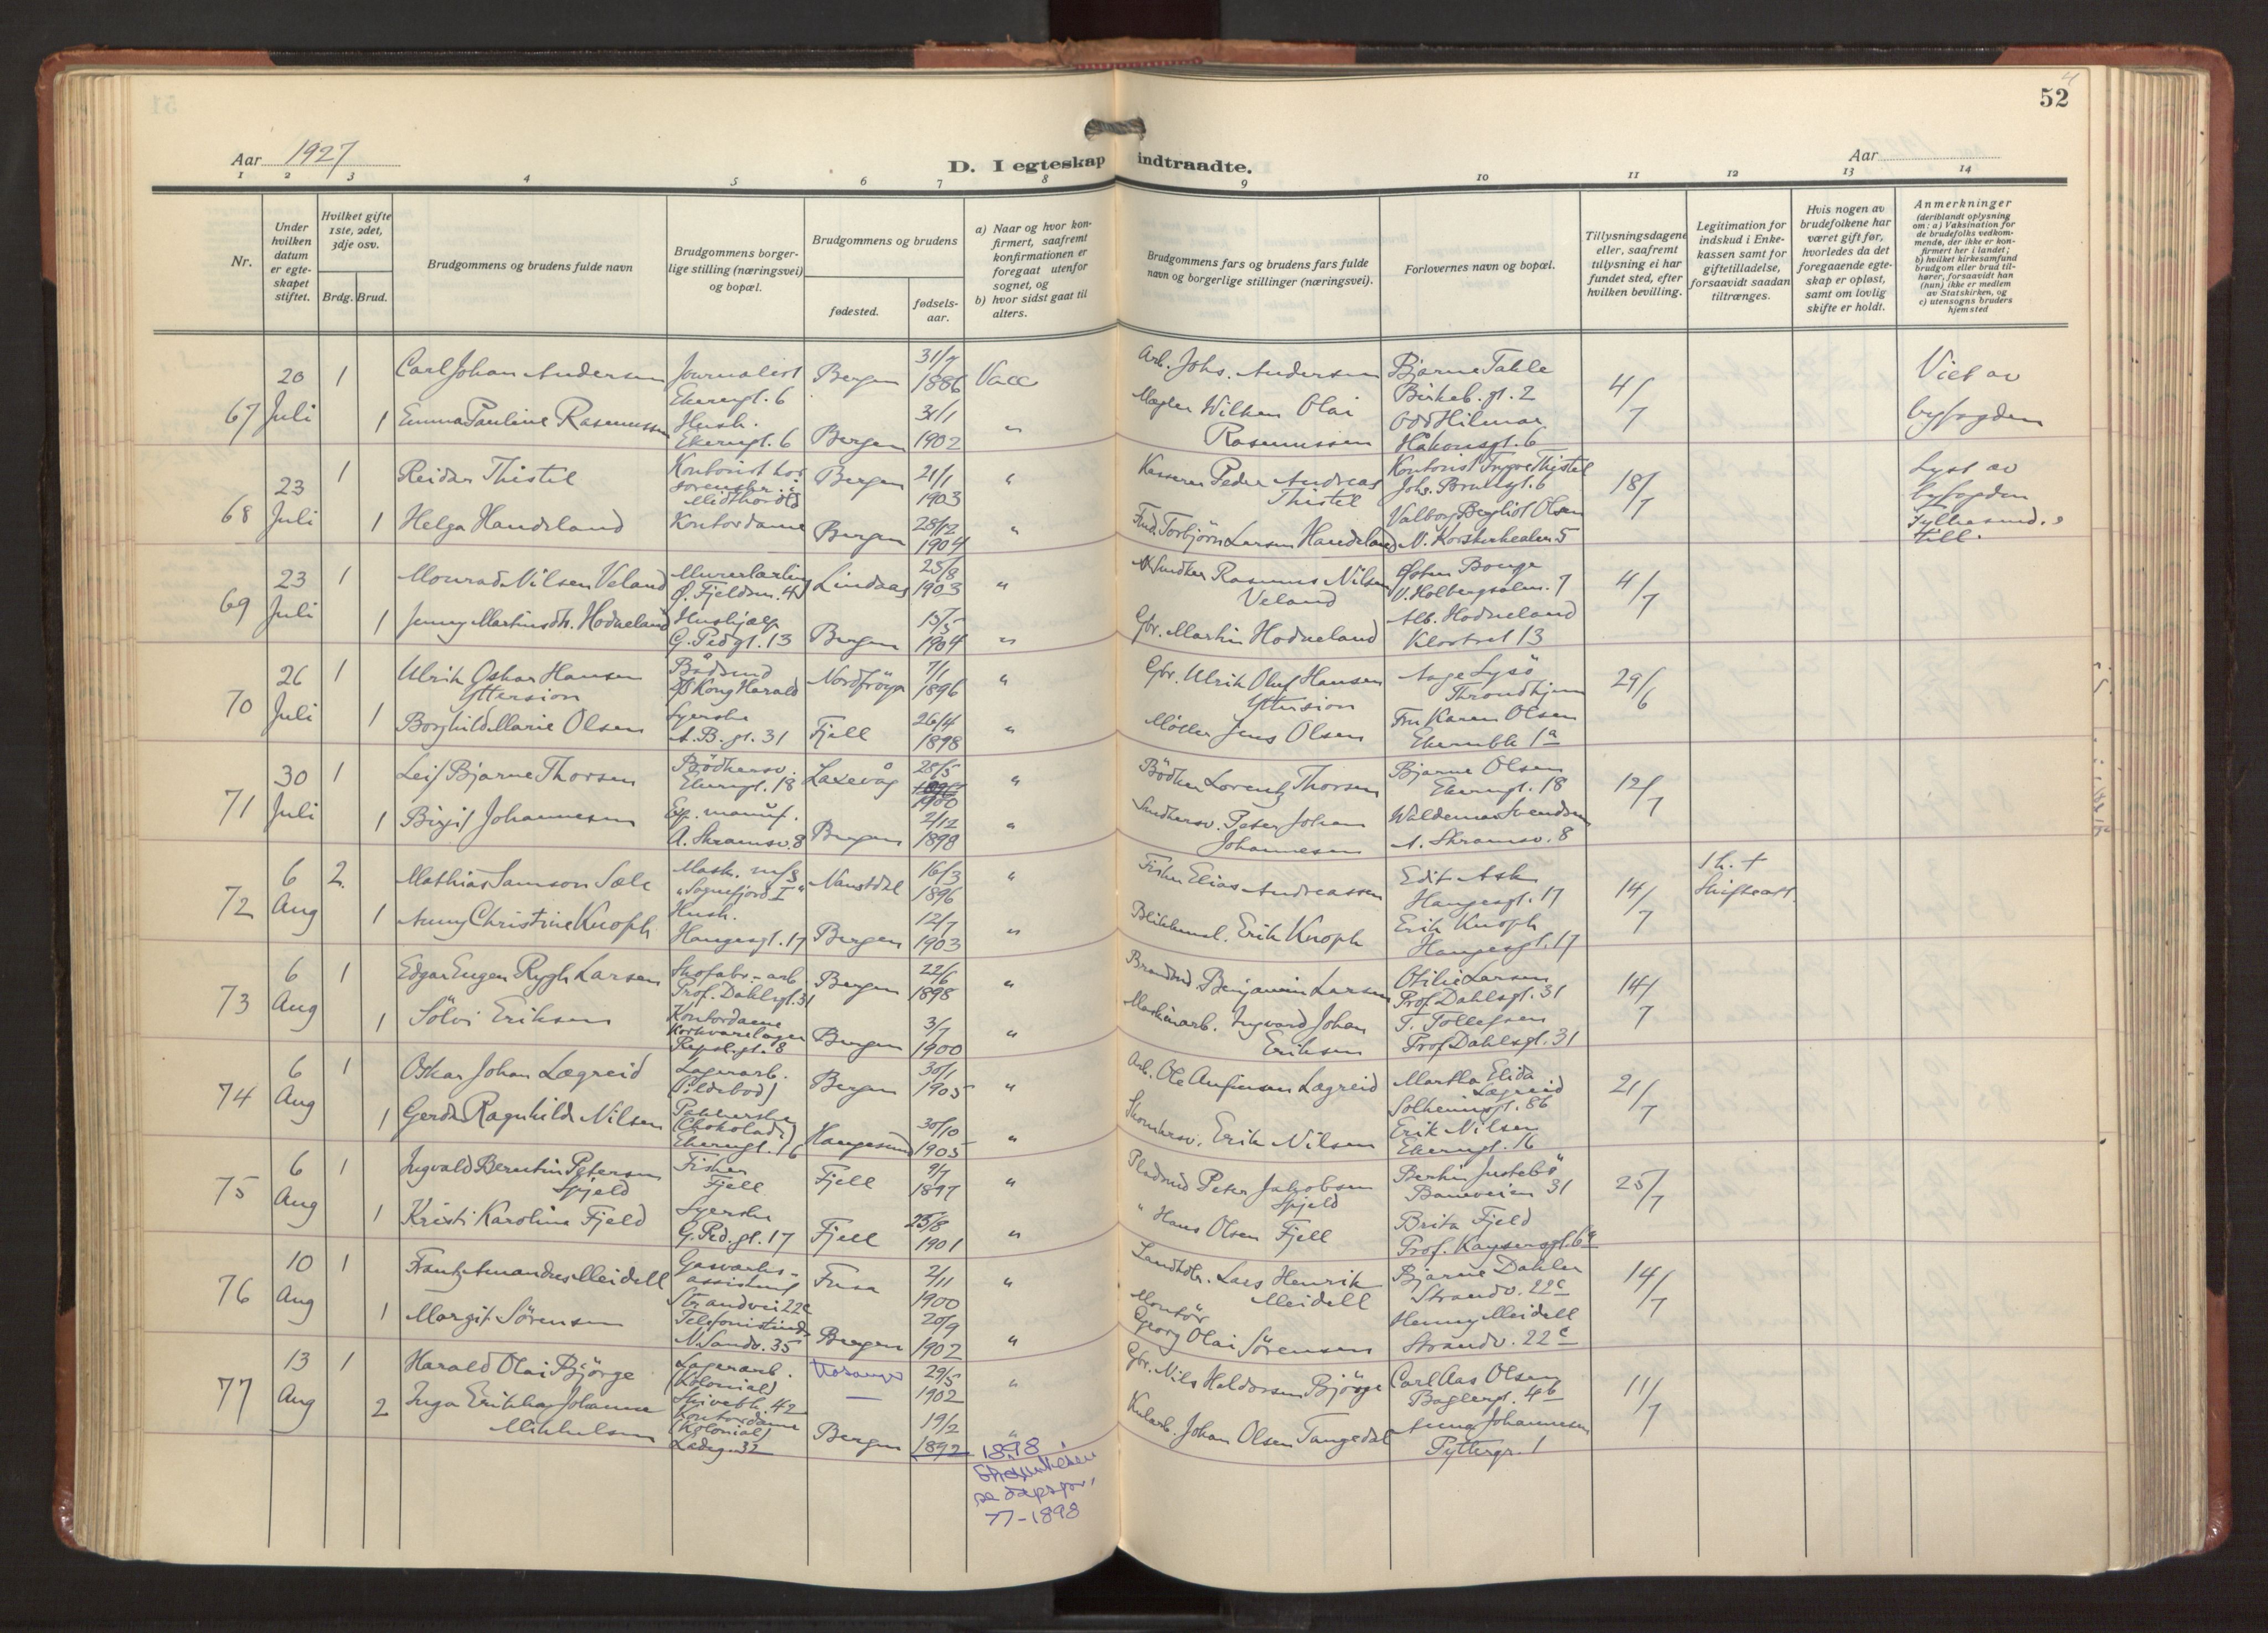 52
Aar 1927
D. I egteskap indtraadte.
Aar
1 2 3 4 5 6 7 8 9 10 11 12 13 14
Nr.
Under hvilken datum er egteskapet stiftet.
Hvilket gifte 1ste, 2det, 3dje osv.
Brdg. Brud.
Brudgommens og brudens fulde navn
Brudgommens borgerlige stilling (næringsvei) og bopæl.
Brudgommens og brudens
fødested.
fødselsaar.
a) Naar og hvor konfirmert, saafremt konfirmationen er foregaat utenfor sognet, og
b) hvor sidst gaat til alters.
Brudgommens fars og brudens fars fulde navn og borgerlige stillinger (næringsvei).
Forlovernes navn og bopæl.
Tillysningsdagene eller, saafremt tillysning ei har fundet sted, efter hvilken bevilling.
Legitimation for indskud i Enkekassen samt for giftetilladelse, forsaavidt saadan tiltrænges.
Hvis nogen av brudefolkene har været gift før, hvorledes da det foregaaende egteskap er opløst, samt om lovlig skifte er holdt.
Anmerkninger
(deriblandt oplysning om: a) Vaksination for de brudefolks vedkommende, der ikke er konfirmert her i landet;
b) hvilket kirkesamfund brudgom eller brud tilhører, forsaavidt han (hun) ikke er medlem av Statskirken, og
c) utensogns bruders hjemsted
67 20 Juli 1 Carl Johan Andersen Journalist Ekerengt. 6 Bergen 31/7 1886 Vacc Arb. Johs. Andersen Bjarne Takle Birkeb. gt. 2 4/7 Viet av byfogden
1 Emma Pauline Rasmussen Hush. Ekerengt. 6 Bergen 31/1 1902 " Mægler Wilken Olai Rasmussen Odd Hilmar Håkonsgt. 6
68 23 Juli 1 Reidar Thistel Kontorist hos sorenskr. i Midthordld Bergen 21/1 1903 " Kasserer Peder Andreas Thistel Kontorist Trygve Thistel Johs. Brunsgt. 6 18/7 Lyst av byfogden
1 Helga Handeland Kontordame Bergen 28/12 1904 " Torbjörn Larsen Handeland Valborg Bergliot Olsen N. Korskirkealm. 5 till.
69 23 Juli 1 Monrad Nilsen Veland Murerlærling Ø. Fjeldsm. 4 Lindaas 25/8 1903 " Rasmus Nilsen Veland V. Holbergsalm. 7 4/7
1 Jenny Martinsdtr. Hodneland Hushjælp G. Ped gt. 13 Bergen 15/5 1904 " Gbr. Martin Hodneland Alb. Hodneland Klostret 13
70 26 Juli 1 Ulrik Oskar Hansen Yttersion Bådsmd D/S Kong Harald Nordfröya 7/1 1896 " Gbr. Ulrik Oluf Hansen Yttersion Aage Lysö Throndhjem 29/6
1 Borghild Marie Olsen Syerske A. B. gt. 31 Fjell 26/4 1898 " Møller Jens Olsen Fru Karen Olsen Ekernbk 1a
71 30 Juli 1 Leif Bjarne Thorsen Bödkersv. Ekerngt. 18 Laxevåg 28/5 1900 " Bödker Lorentz Thorsen Bjarne Olsen Ekerngt. 18 12/7
1 Birgit Johannesen Exp. manuf. A. Skramsv. 8 Bergen 2/12 1898 " Snedkersv. Peter Johan Johannesen Waldemar Svendsen A. Skramsv. 8
72 6 Aug 2. Mathias Samson Sæle Mask. m/s "Sognefjord I" Naustdal 16/3 1896 " Fisker Elias Andreassen Edit Ask Haugesgt. 17 14/7 Skifteatt.
1 Anny Christine Knoph Hush. Haugesgt. 17 Bergen 12/7 1903 " Blikkensl. Erik Knoph Erik Knoph Haugesgt. 17
73 6 Aug 1 Edgar Eugen Rygh Larsen Skofabr.-arb Prof. Dahlsgt. 31 Bergen 22/6 1898 " Brandmd Benjamin Larsen Otilie Larsen Prof. Dahlsgt. 31 14/7
1 Sölvi Eriksen Kontordame Repsl.gt. 8 Bergen 3/7 1900 " Maskinarb. Ingvard Johan Eriksen T. Tollefsen Prof Dahlsgt. 31
74 6 Aug 1 Oskar Johan Lægreid Lagerarb. (Sildebod) Bergen 30/1 1905 " Arb. Ole Anfinsen Lægreid Martha Elida Lægreid Solheimsgt. 86 21/7
1 Gerda Ragnhild Nilsen Pakkerske (Chokolade) Ekerngt. 16 Haugesund 30/10 1905 " Skomkrsv. Erik Nilsen Erik Nilsen Ekerngt. 16
75 6 Aug 1 Ingvald Berntin Petersen Spjeld Fisker Fjell Fjell 9/7 1897 " Pladsmd Peter Jakobsen Spjeld Bertin Justebö Baneveien 31 25/7
1 Kristi Karolina Fjeld Syerske G. Ped. gt. 17 Fjell 25/8 1901 " " Hans Olsen Fjell Brita Fjeld Prof. Kaysersgt. 6a
76 10 Aug 1 Frantz Amandus Meidell Gasverks-assistent Strandvei 22c Fusa 2/11 1900 " Landhdlr. Lars Henrik Meidell Bjarne Dahler Strandv. 22c 14/7
1 Margit Sörensen Telefonistinde N. Sandv. 35 Bergen 20/9 1902 " Montör Georg Olai Sörensen Henny Meidell Strandv. 22c
77 13 Aug 1 Harald Olai Björge Lagerarb. (Kolonial) Skivebk. 42 29/5 1902 " Gbr. Nils Haldorsen Björge Carl Aas Olsen Baglergt. 4b 11/7
2 Inga Erikka Johanne Mikkelsen Kontordame (Kolonial) Ladeg. 32 Bergen 19/2 1892 " Johan Olsen Tangedal Anna Johannesen Pyttergr. 1
1898
se dåpspr.
77-1898